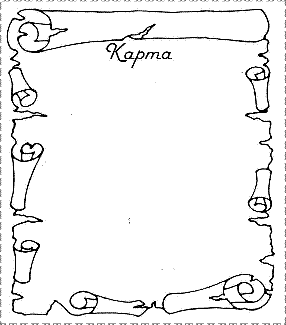 Карта